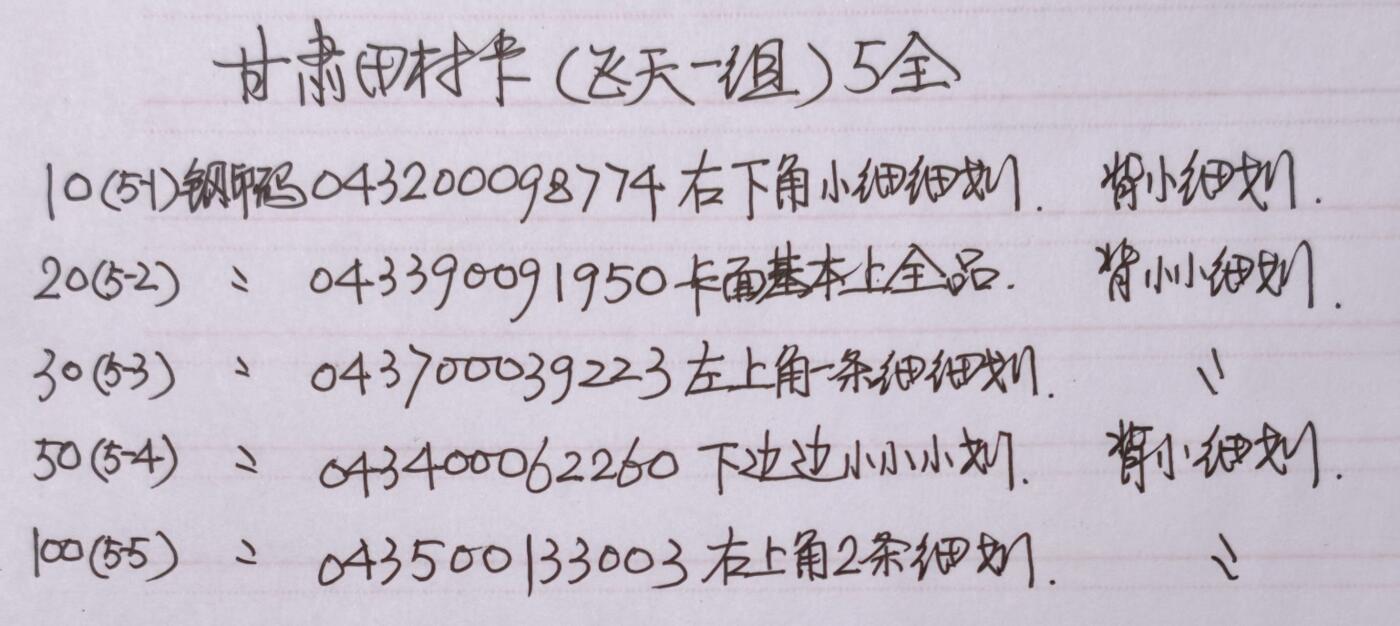 甘肃田村卡（飞天一组）5全
10(5-1)钢印码043200098774右下角小细细划. 背小细划.
20(5-2) 〃 043390091950卡面基本上全品. 背小小细划.
30(5-3) 〃 043700039223左上角一条细细划. 〃
50(5-4) 〃 043400062260下边边小小小划. 背小细划.
100(5-5) 〃 043500133003右上角2条细划. 〃